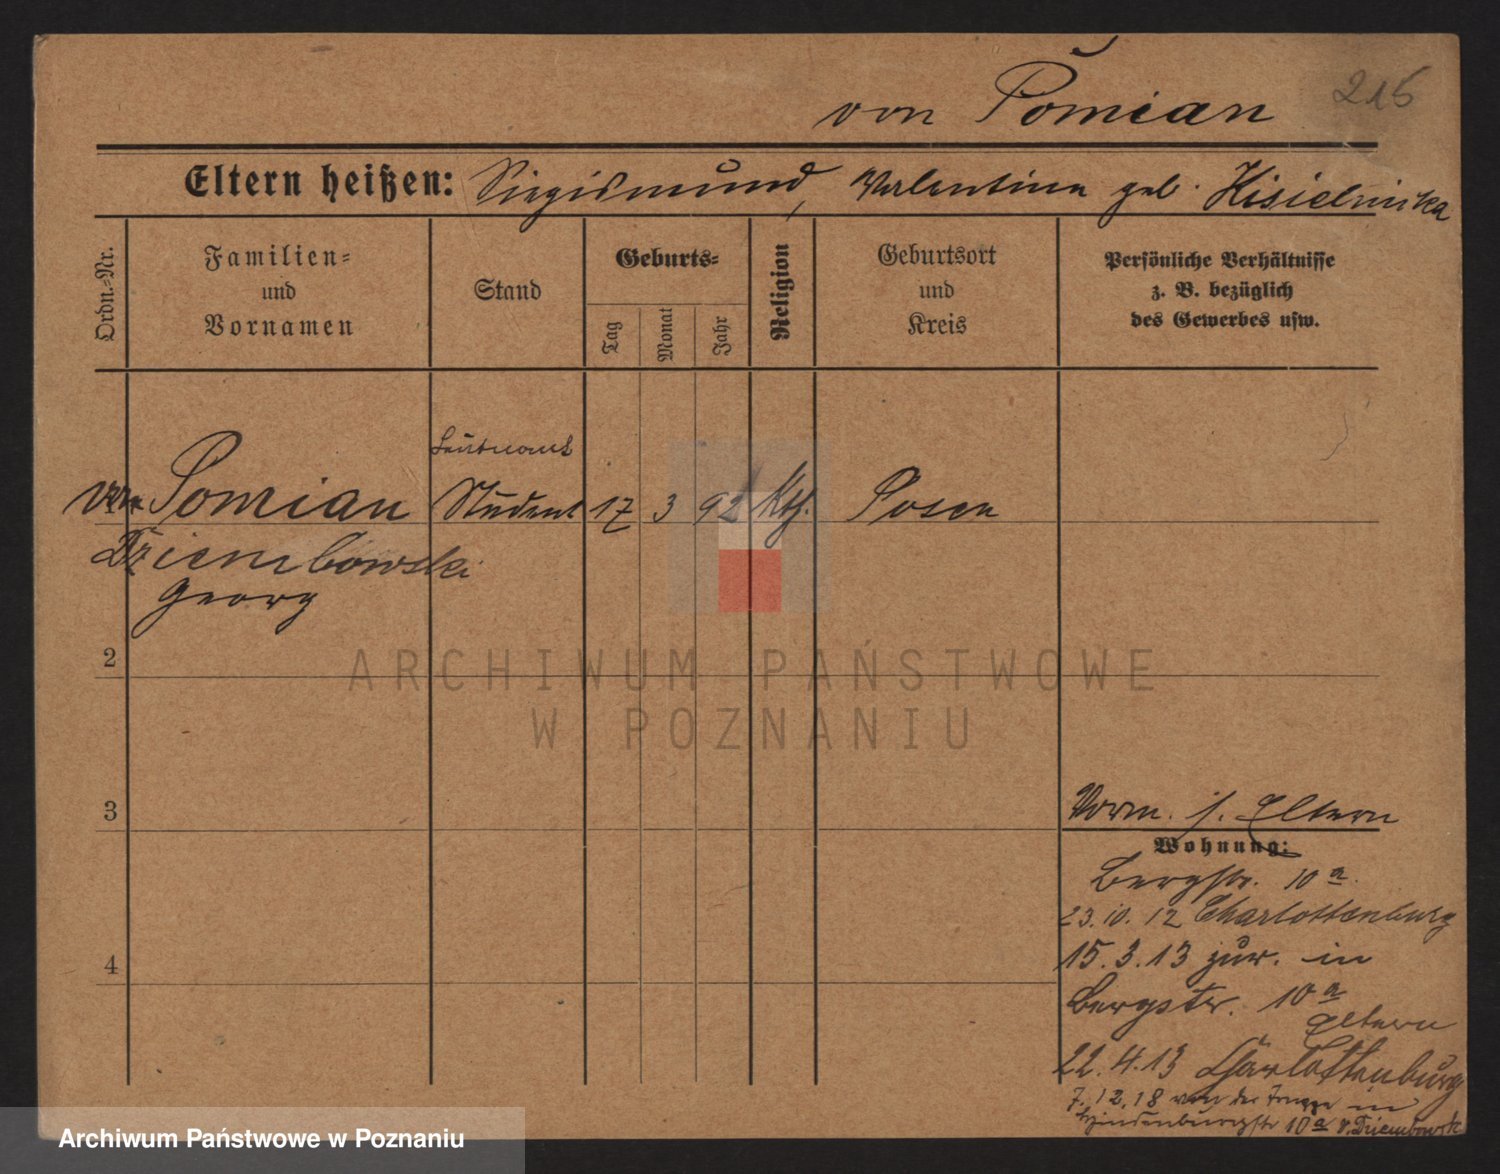 216
von Pomian
Eltern heißen: Siegismund, Valentina geb. Kisielnicka
Ordn.-Nr.
Familien-
und
Vornamen
Stand
Geburts-
Tag
Monat
Jahr
Religion
Geburtsort
und
Kreis
Persönliche Verhältnisse
z. B. bezüglich
des Gewerbes usw.
Leutnant
von Pomian Student 17 3 92 Kth. Posen
Dziembowski
Georg
2
3
4
Vorm. s. Eltern
Wohnung:
Bergstr. 10a
23.10.12 Charlottenburg
15.3.13 zur. in
Bergstr. 10a
Eltern
22.4.13 Charlottenburg
7.12.18 von der Truppe in
Hindenburgstr 10a v. Dziembowski
ARCHIWUM PAŃSTWOWE
W POZNANIU
Archiwum Państwowe w Poznaniu